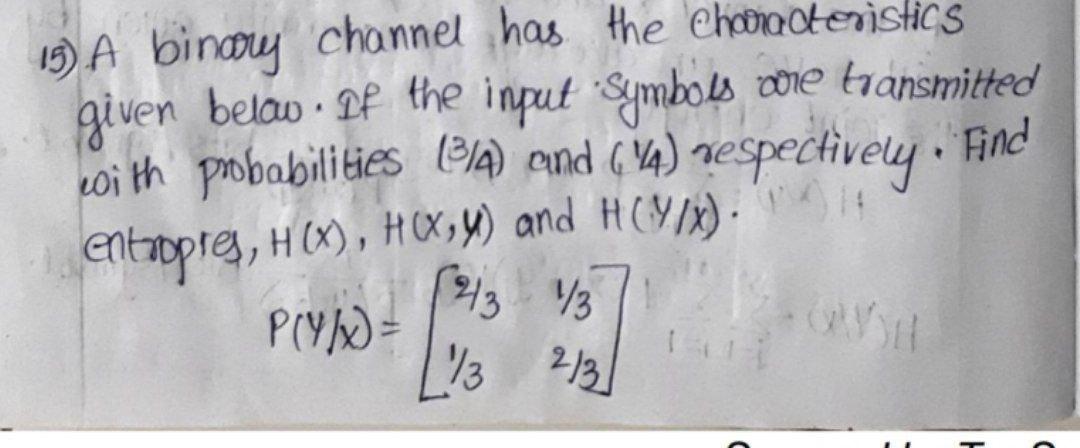 15) A binary channel has the characteristics
given below. If the input symbols are transmitted
with probabilities (3/4) and (1/4) respectively. Find
entropies, H(X), H(X,Y) and H(Y/X).
P(Y/X) = [2/3 1/3
1/3 2/3]